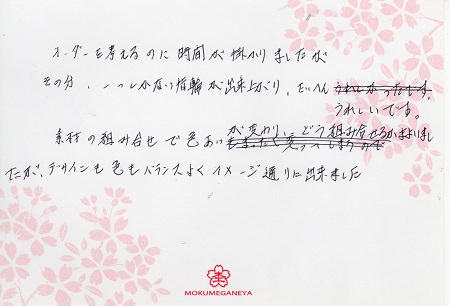 オーダーを考えるのに時間が掛かりましたが
その分、一つしかない指輪が出来上がり、たいへんうれしかったです。
うれしいです。
素材の組み合せで色あいが変わりにどう組み合せるかまよいまし
たが、デザインも色もバランスよくイメージ通りに出来ました
MOKUMEGANEYA